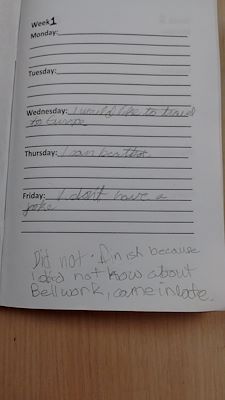 Week1
Monday:
Tuesday:
Wednesday: I would like to travel
to Europe
Thursday: I can
Friday: I don't have a
joke
Did not finish because
I did not know about
Bellwork, came in late.